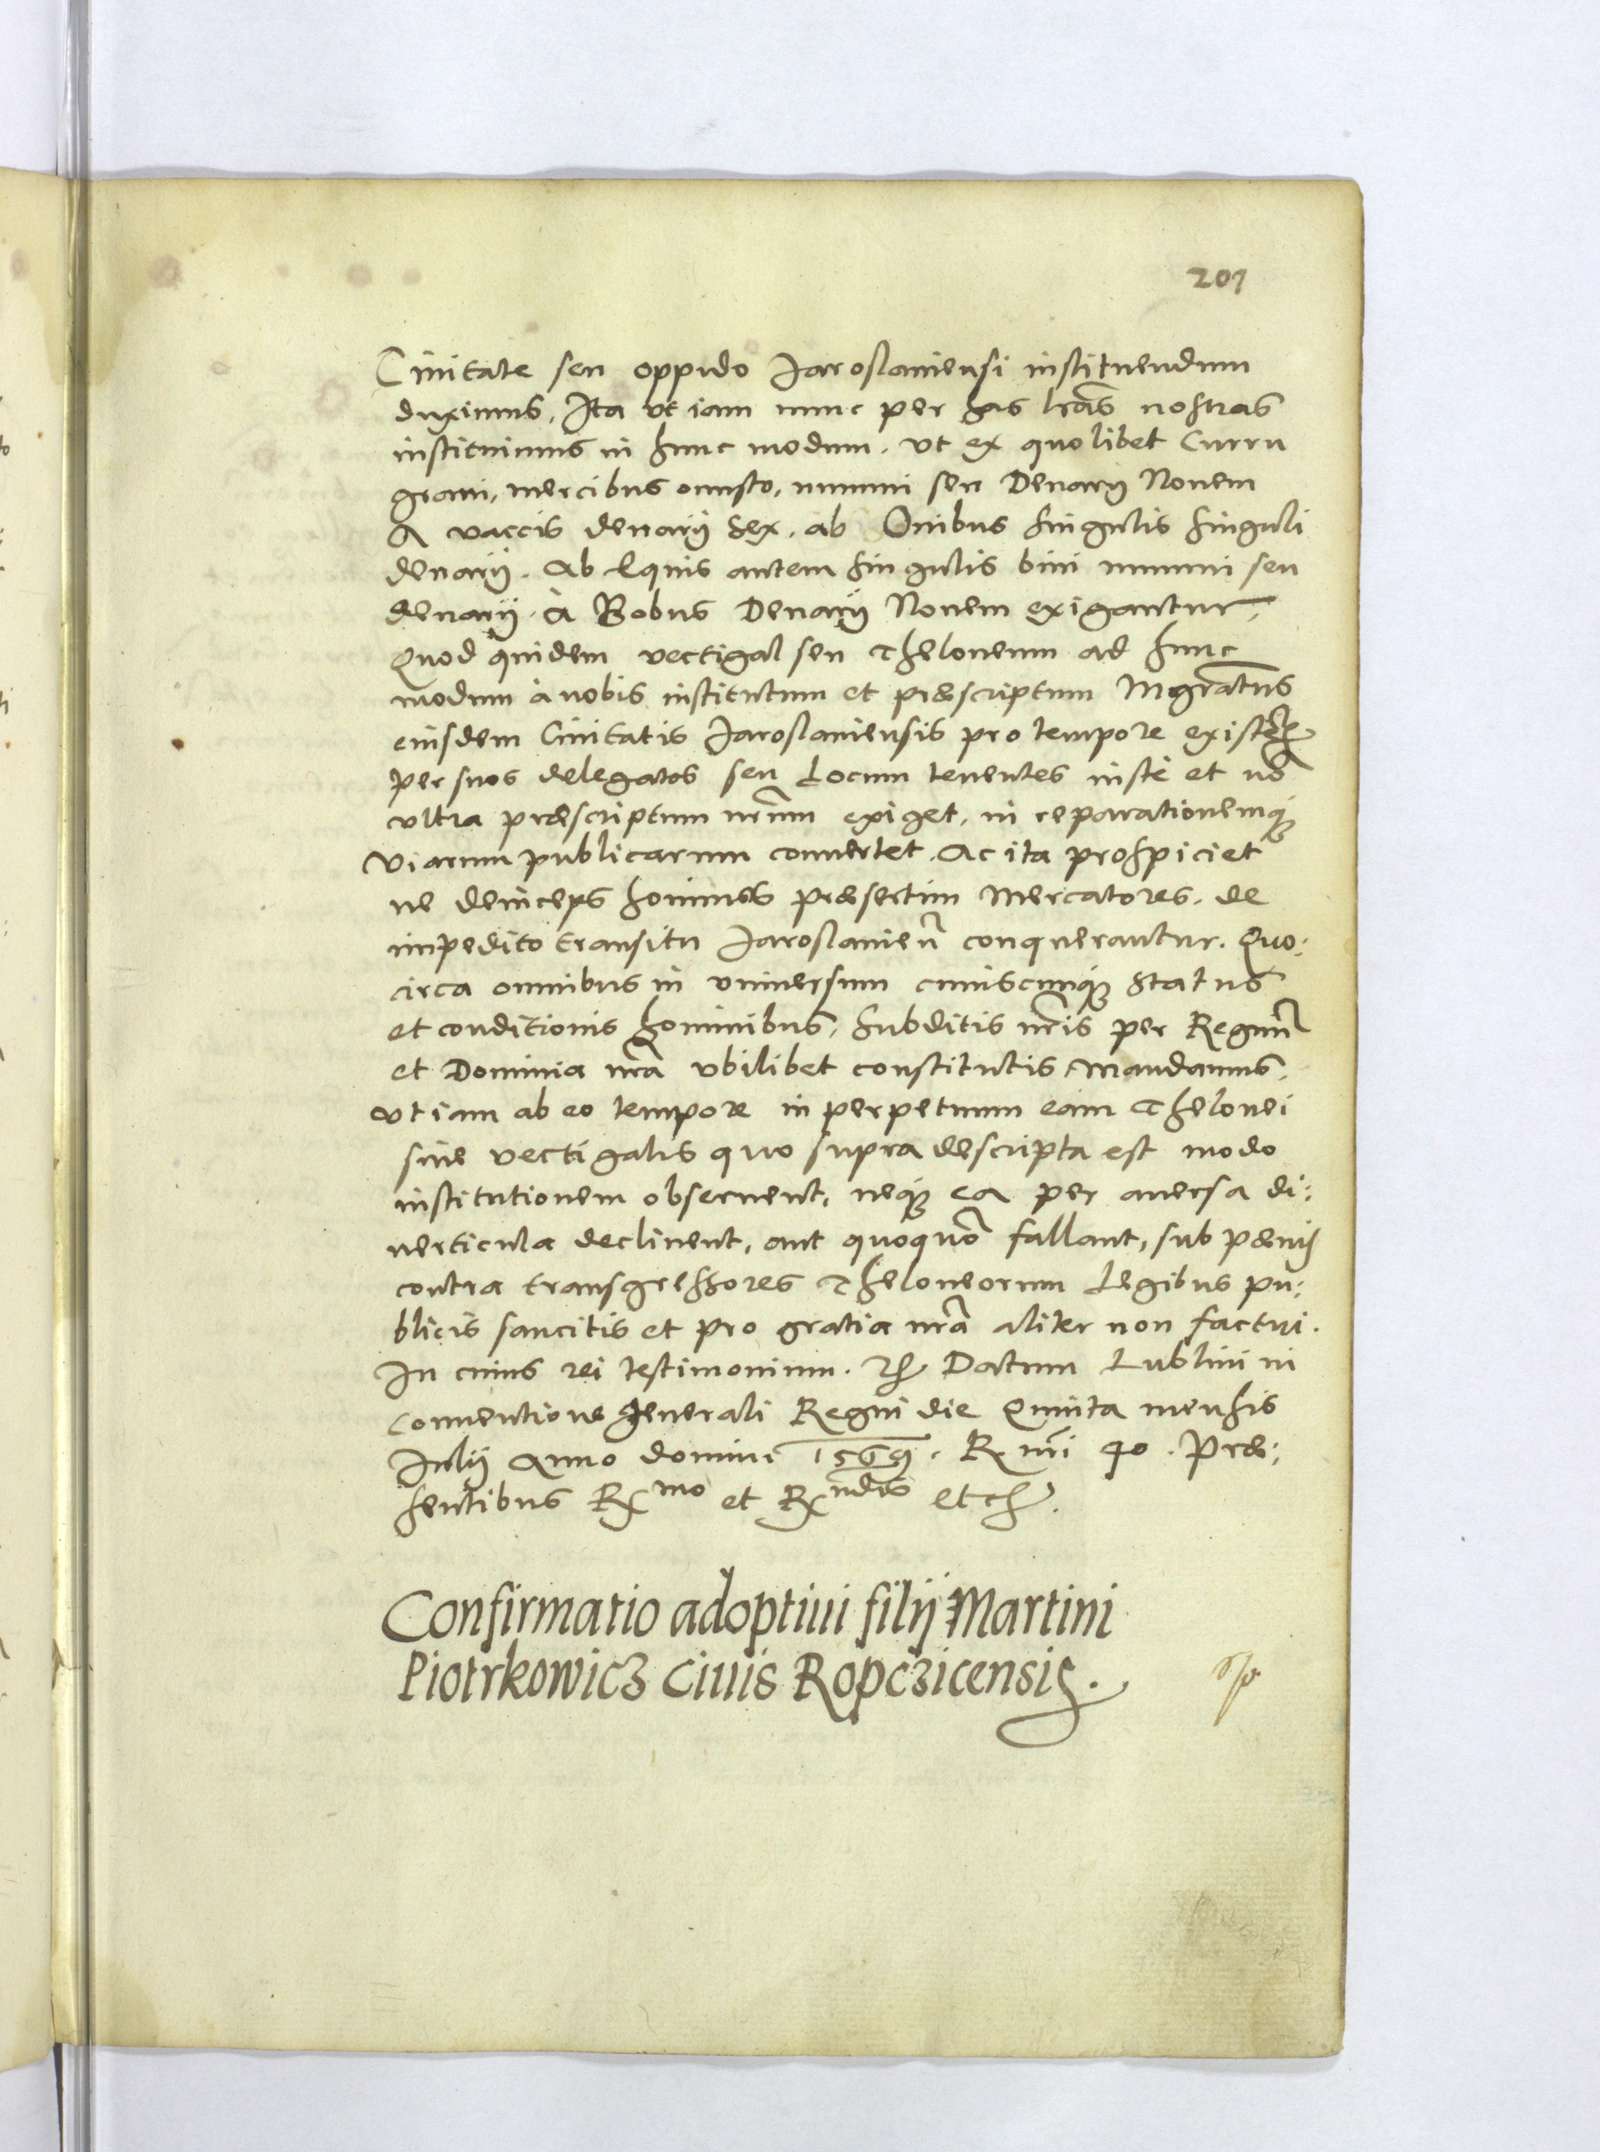 201
Ciuitate seu oppido Jaroslauiensi instituendum
duximus, Ita vt iam nunc per has lr̃as nostras
instituimus in hunc modum. vt ex quolibet Curru
graui, mercibus onusto, nummi seu Denarij Nouem
A vaccis denarij Sex. ab Ouibus singulis singuli
denarij. Ab Equis autem singulis bini nummi seu
denarij. à Bobus Denarij Nouem exigantur.
Quod quidem vectigal seu Theloneum ad hunc
modum à nobis institutum et præscriptum Mgrãtus
eiusdem Ciuitatis Jaroslauiensis pro tempore existeñ
per suos delegatos seu Locum tenentes iuste et nõ
vltra præscriptum nr̃um exiget, in reparationemq́
viarum publicarum conuertet. Ac ita prospiciet
ne deinceps homines præsertim Mercatores. de
impedito transitu Jaroslauieñ conquerantur. Quo:
circa omnibus in vniuersum cuiuscunq́ Status
et conditionis hominibus, subditis nr̃is per Regnũ
et Dominia nr̃a vbilibet constitutis Mandamus,
vt iam ab eo tempore in perpetuum eam Thelonei
siue vectigalis quo supra descripta est modo
institutionem obseruent, neq́ ea per auersa di:
uerticula declinent, aut quoquõ fallant, sub pænis
contra transgressores Theloneorum Legibus pu:
blicis sancitis et pro gratia nr̃a aliter non facturi.
In cuius rei testimonium. etc. Datum Lublini in
Conuentione generali Regni die Quinta mensis
Julij Anno domini 1569. R. nr̃i 40. Præ:
sentibus R mo et R ndis etc.
Confirmatio adoptiui filij Martini
Piotrkowicz Ciuis Ropczicensis.